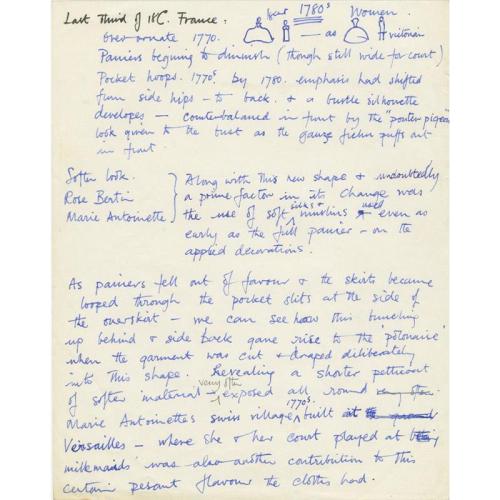 Last Third of 18C. France. year 1780s Women.
over ornate 1770. — as victorian
Paniers begining to diminish (though still wide for court)
Pocket hoops. 1770s. By 1780. emphasis had shifted
from side hips – to back. & a bustle silhouette
developes – counterbalanced in front by the "pouter pigeon"
look given to the bust as the gauze fichu puffs out
in front.
Softer look.
Rose Bertin
Marie Antoinette
Along with this new shape & undoubtedly
a prime factor in its change was
the use of soft silks & muslins used even as
early as the full panier – on the
applied decorations.
As paniers fell out of favour & the skirts became
looped through the pocket slits at the side of
the overskirt – we can see how this bunching
up behind & side back gave rise to the "polonaise"
when the garment was cut & draped deliberately
into this shape. Revealing a shorter petticoat
of softer material – very often exposed all round very often
Marie Antoinettes swiss village 1770s. built at the
Versailles – where she & her court played at being
milkmaids was also another contribution to this
certain pesant flavour the clothes had.